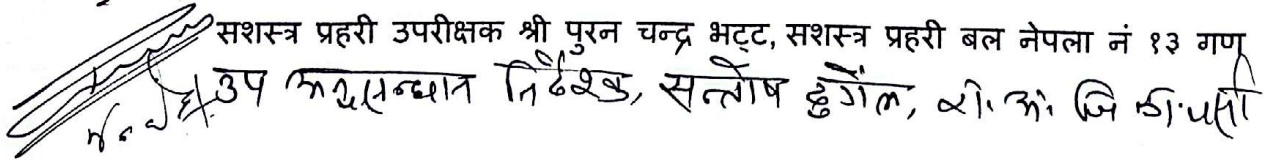 सशस्त्र प्रहरी उपरीक्षक श्री पुरन चन्द्र भट्ट, सशस्त्र प्रहरी बल नेपला नं १३ गण
उप अनुसन्धान निर्देशक, सन्तोष दुंगेल, रा. अ. जि का. पर्सा